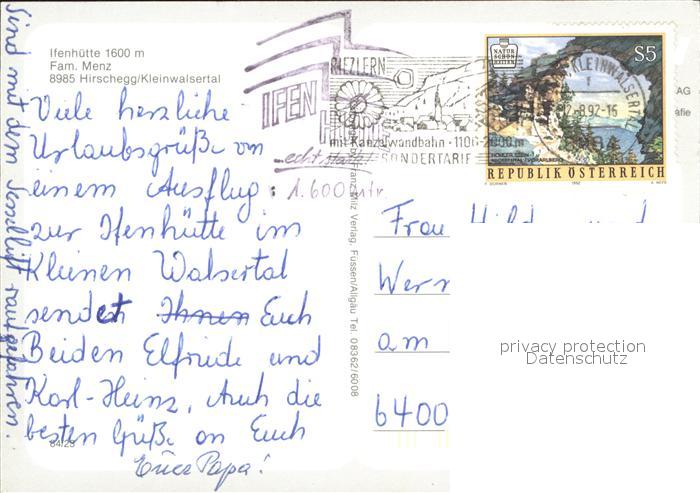 Ifenhütte 1600 m
Fam. Menz
8985 Hirschegg/Kleinwalsertal
Viele herzliche
Urlaubsgrüße von
einem Ausflug: 1.600 mtr.
zur Ifenhütte im
Kleinen Walsertal
sendet Ihnen Euch
Beiden Elfriede und
Karl-Heinz, Auch die
besten Grüße an Euch
Euer Papa!
84/25
Sind mit dem Sessellift raufgefahren.
Franz Milz Verlag, Füssen/Allgäu Tel. 08362/6008
IFEN
RIEZLERN
mit Kanzelwandbahn · 1106-2000m
SONDERTARIF
KLEINWALSERT
-8.92-16
NATUR
SCHÖN
HEITEN
S5
REPUBLIK ÖSTERREICH
1992
AG
Frau
Wer
am
6400
privacy protection
Datenschutz